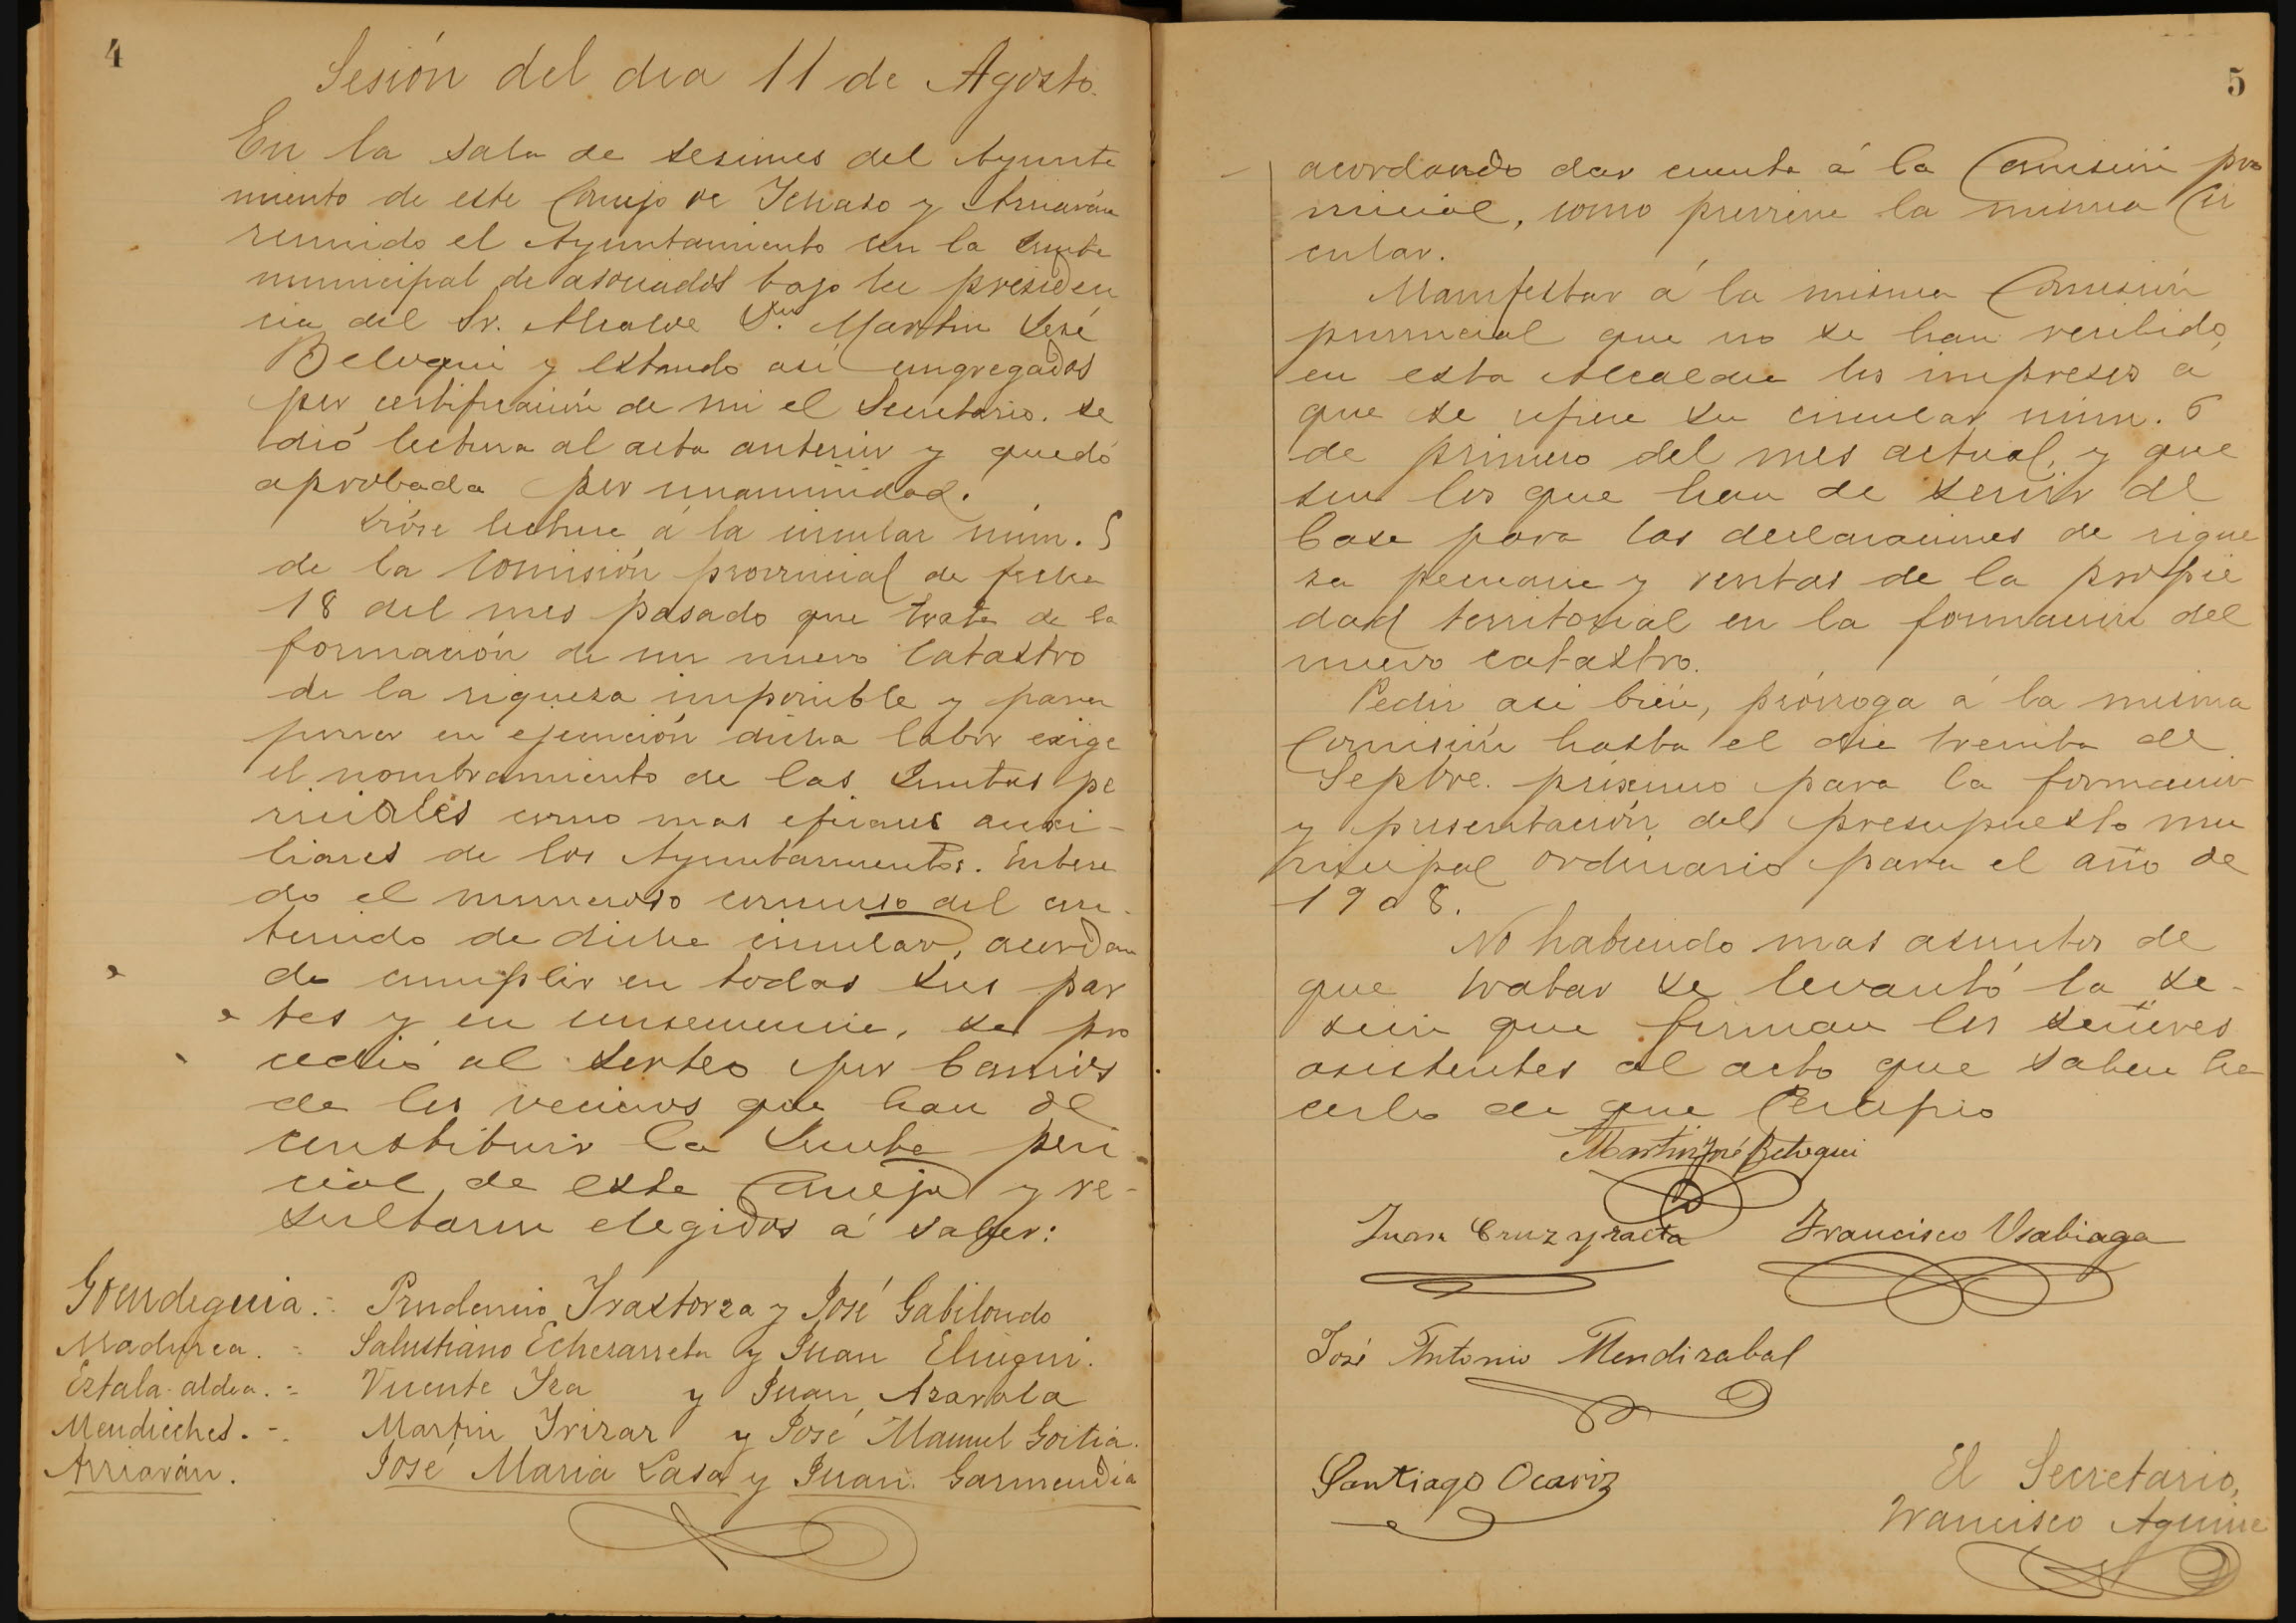 4
Sesión del dia 11 de Agosto.
En la sala de sesiones del Ayunta
miento de este Concejo de Ichaso y Arriarán
reunido el Ayuntamiento con la Junta
municipal de asociados bajo la presiden
cia del Sr. Alcalde Dn. Martin José
Beloqui y estando asi congregados
por certificación de mi el Secretario. se
dió lectura al acta anterior y quedó
aprobada por unanimidad.
Dióse lectura á la circular núm. 5
de la Comisión provincial de fecha
18 del mes pasado que trata de la
formación de un nuevo Catastro
de la riqueza imponible y para
poner en ejecución dicha labor exige
el nombramiento de las Juntas pe
riciales como mas eficaces auxi-
liares de los Ayuntamientos. Entera
do el numeroso concurso del con-
tenido de dicha circular, acordan
do cumplir en todas sus par
tes y en consecuencia, se pro
cedió al sorteo por barrios
de los vecinos que han de
constituir la Junta peri
cial de este Concejo y re-
sultaron elegidos á saber:
Goendeguia.- Prudencio Irastorza y José Gabilondo
Madurea. - Salustiano Echezarreta y Juan Elustgui.
Estala-aldea. - Vicente Iza y Juan Azarola
Mendieches. - Martin Irizar y José Manuel Goitia.
Arriarán. José Maria Lasa y Juan Garmendia
5
acordando dar cuenta á la Comisión pro
vincial, como previene la misma Cir
cular.
Manifestar á la misma Comisión
provincial que no se han recibido
en esta Alcaldia los impresos a
que se refiere su circular núm. 6
de primero del mes actual, y que
son los que han de servir de
base para las declaraciones de rique
za pecuaria y rentas de la propie
dad territorial en la formación del
nuevo catastro.
Pedir asi bién, prórroga á la misma
Comisión hasta el dia treinta de
Septbre. próximo para la formación
y presentación del presupuesto mu
nicipal ordinario para el año de
1908.
No habiendo mas asuntos de
que tratar se levantó la se-
sión que firman los señores
asistentes al acto que saben ha
cerlo de que Certifico
Martin José Beloqui
Juan Cruz yzaeta Francisco Usabiaga
José Antonio Mendizabal
Santiago Ocariz
El Secretario,
Francisco Aguirre